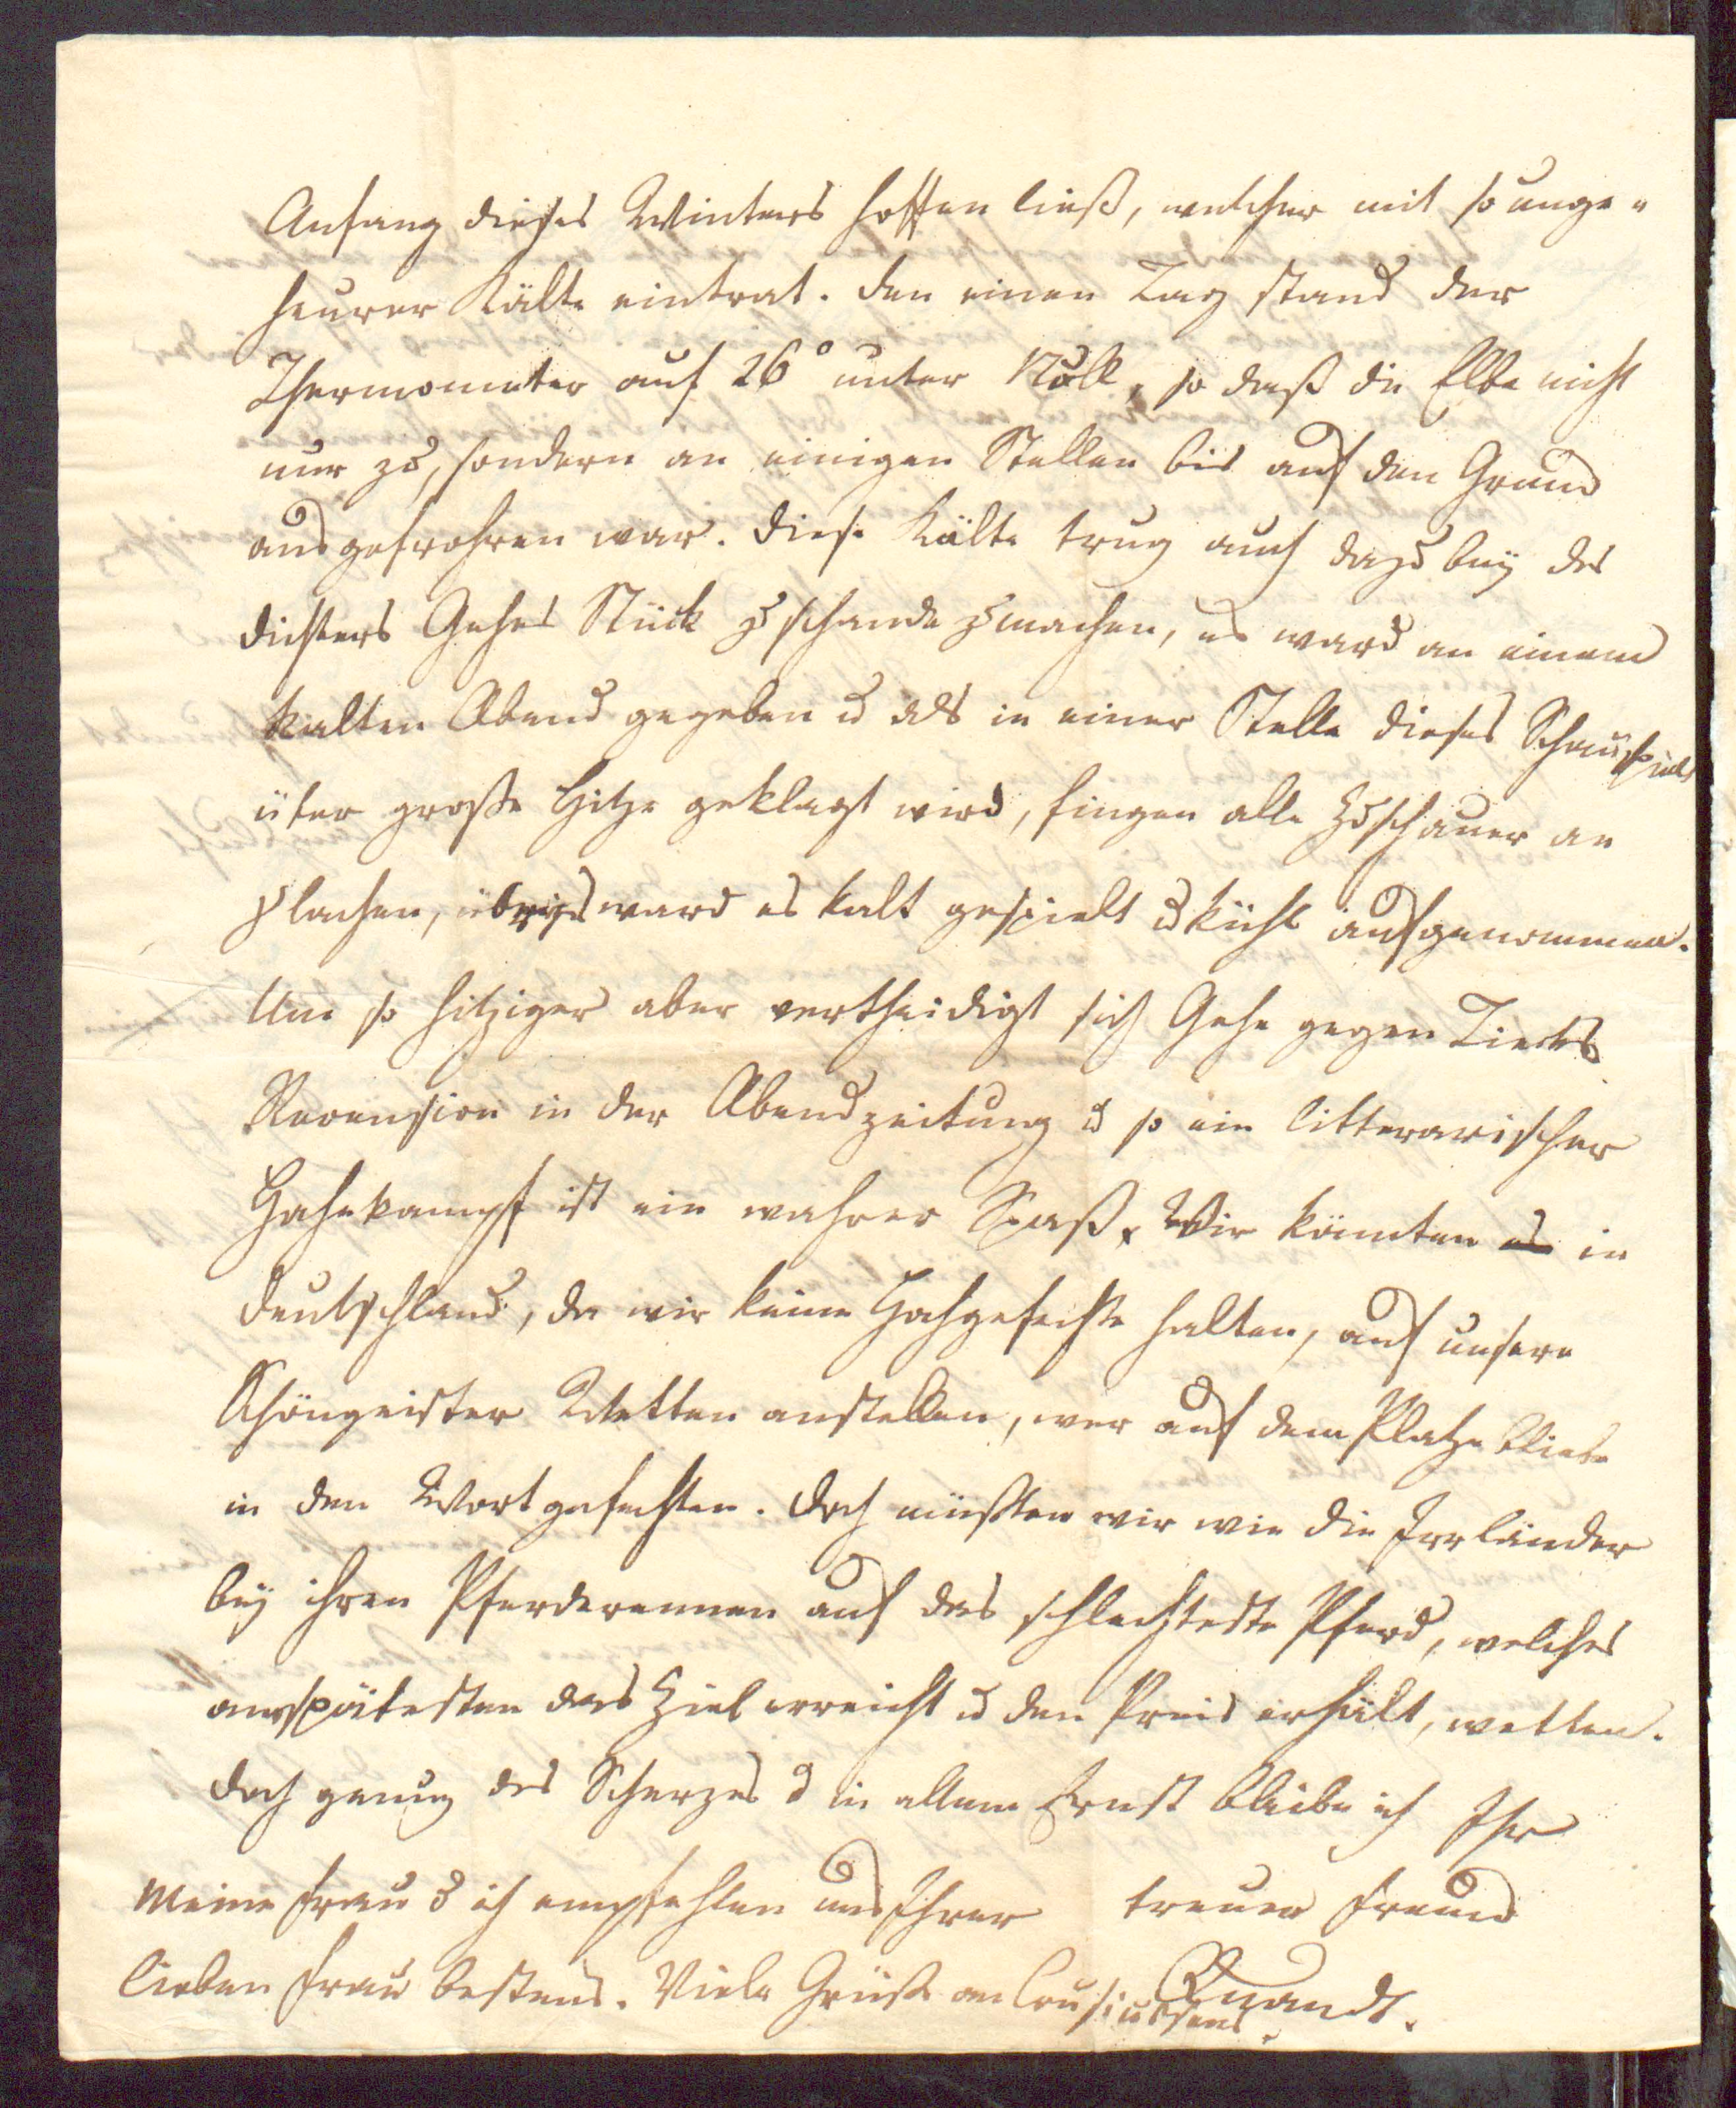 Anfang dieses Winters hoffen ließ, welcher mit so unge-
heurer Kälte eintrat. Den einen Tag stand der
Thermometer auf 26° unter Null, so daß die Elbe nicht
nur zu, sondern an einigen Stellen bis auf den Grund
ausgefrohren war. Diese Kälte trug auch dazu bey des
Dichters Gehes Stück zu schande zu machen, es ward an einem
kalten Abend gegeben u als in einer Stelle dieses Schauspiels
über große Hitze geklagt wird, fingen alle Zuschauer an
zu lachen, übrigs ward es kalt gespielt u kühl aufgenommen.
Um so hitziger aber vertheidigt sich Gehe gegen Tiecks
Recension in der Abendzeitung u so ein litterarischer
Hahnkampf ist ein wahrer Spaß. Wir könnten es in
Deutschland, da wir keine Hahngefechte halten, auf unsere
Schöngeister Wetten anstellen, wer auf dem Platze bliebe
in den Wortgefechten. Doch müßten wir wie die Irrländer
bey ihren Pferderennen auf das schlechteste Pferd, welches
am spätesten das Ziel erreicht u den Preis erhält, wetten.
Doch genug des Scherzes u in allem Ernst bleibe ich Ihr
treuer Freund
Quandt.
Meine Frau u ich empfehlen uns Ihrer
lieben Frau bestens. Viele Grüße an